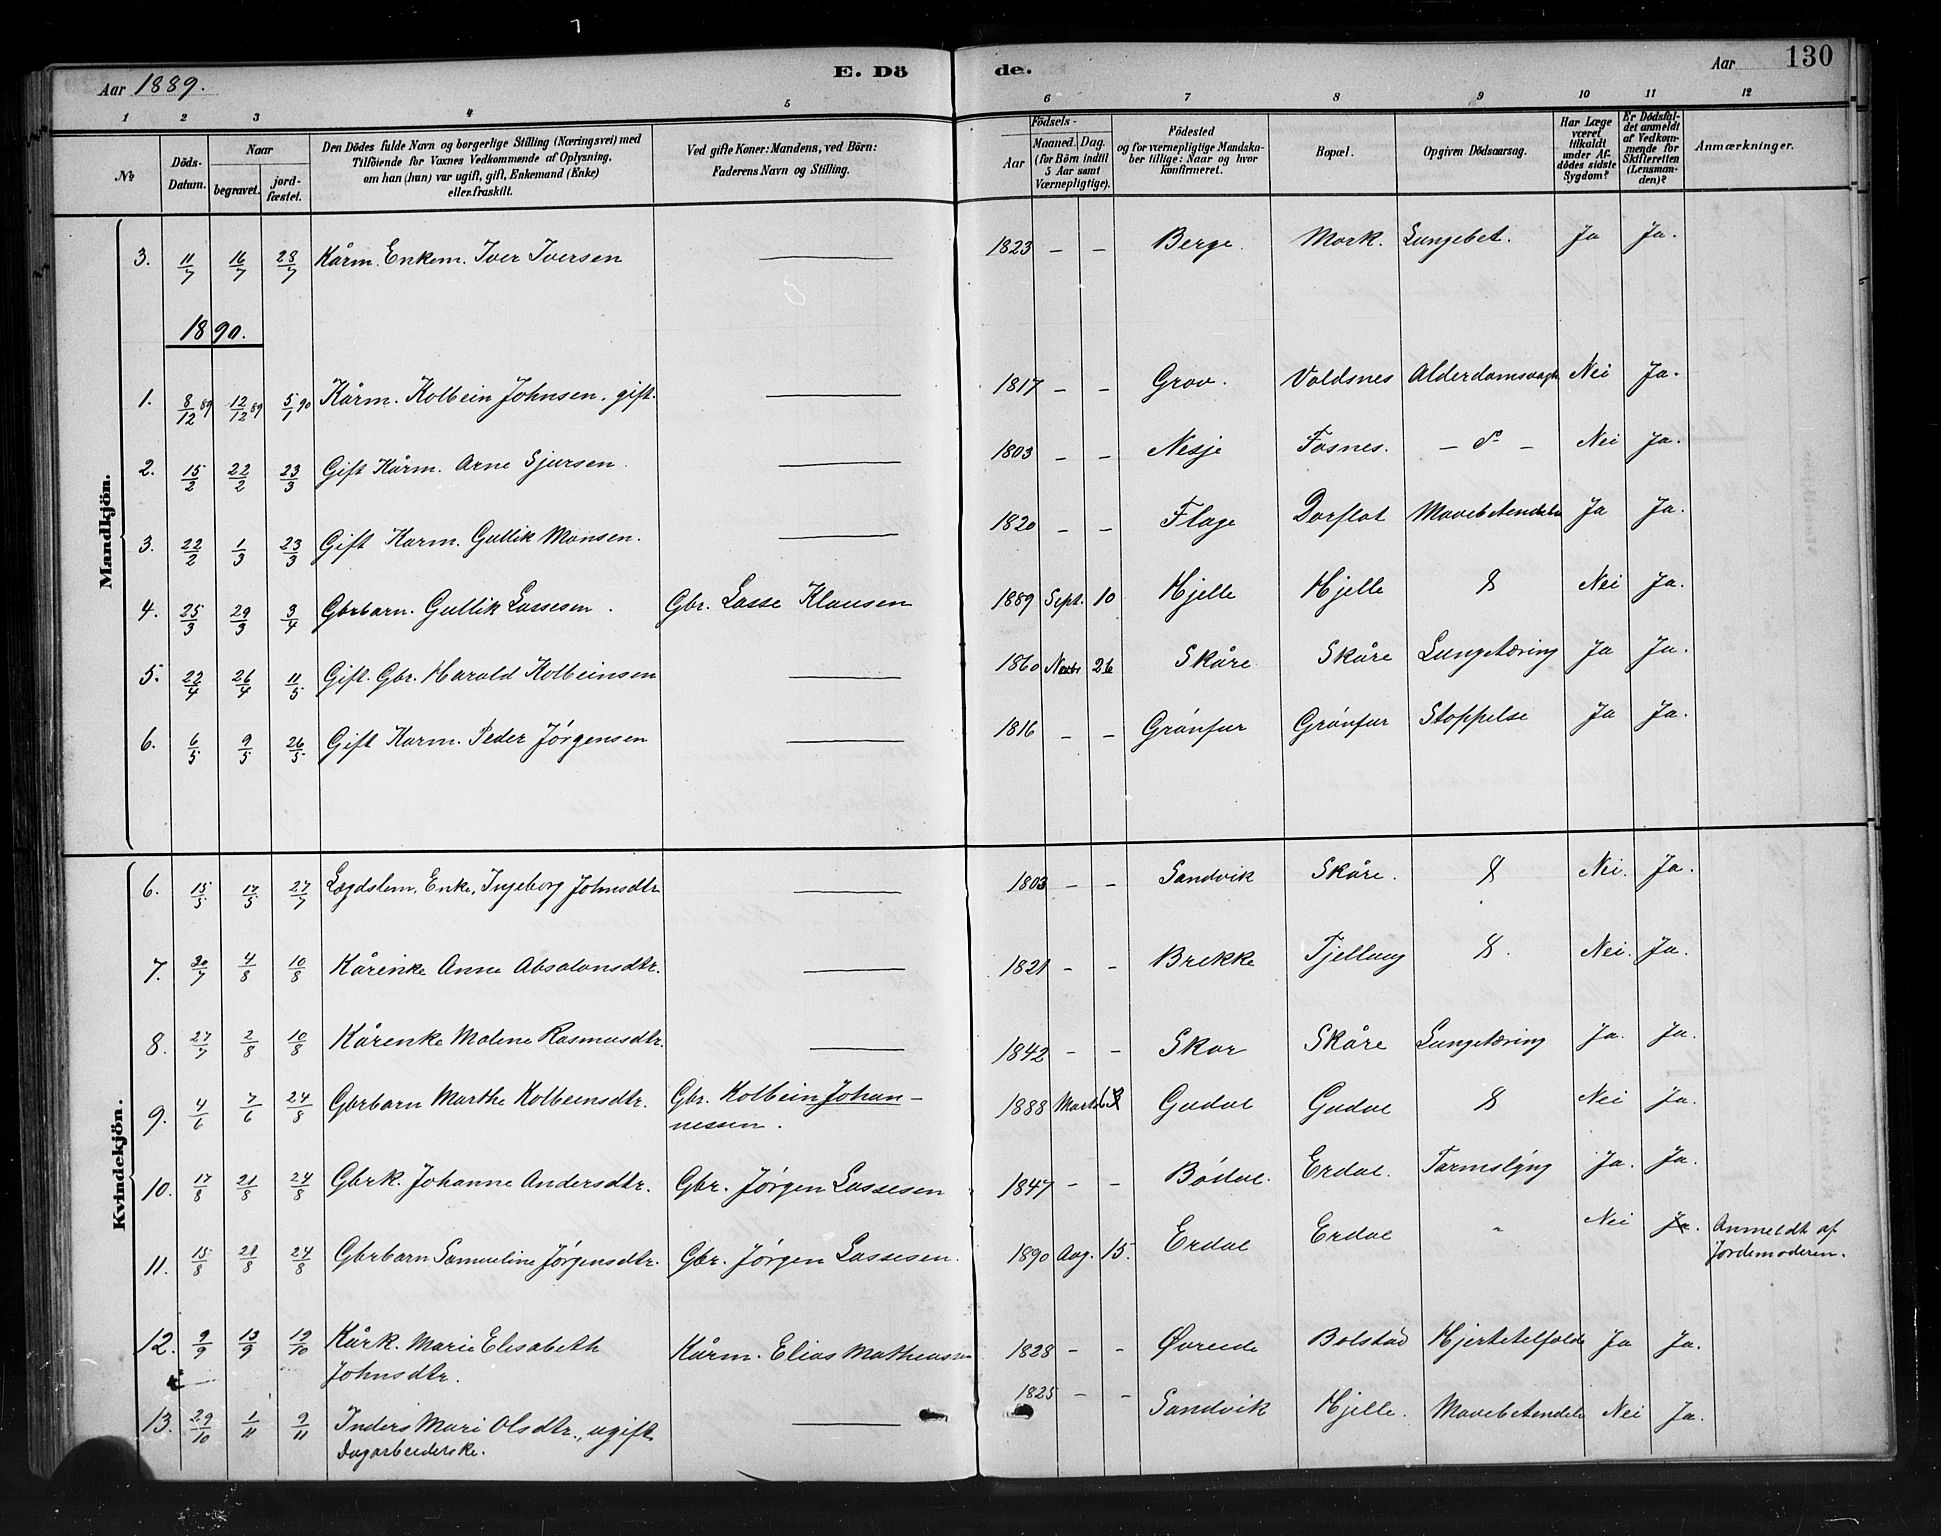 Aar 1889.
E. Dö
de.
Aar
130
1 2 3 4 5 6 7 8 9 10 11 12
№
Döds-Datum.
Naar
begravet.
jord-fæstet.
Den Dödes fulde Navn og borgerlige Stilling (Næringsvei) med
Tilföiende for Voxnes Vedkommende af Oplysning,
om han (hun) var ugift, gift, Enkemand (Enke)
eller fraskilt.
Ved gifte Koner: Mandens, ved Börn:
Faderens Navn og Stilling.
Födsels-
Aar
Maaned. Dag.
(for Börn indtil
5 Aar samt
Værnepligtige).
Födested
og for værnepligtige Mandska-
ber tillige: Naar og hvor
konfirmeret.
Bopæl.
Opgiven Dödsaarsag.
Har Læge
været
tilkaldt
under Af-
dödes sidste
Sygdom?
Er Dödsfal-
det anmeldt
af Vedkom-
mende for
Skifteretten
(Lensman-
den)?
Anmærkninger.
Mandkjön.
3. 11/7 16/7 28/7 Kårm. Enkem. Iver Iversen — 1823 – – Berge. Mork. Lungebet. Ja Ja.
1890.
1. 8/12 89 12/12 89 5/1 90 Kårm. Kolbein Johnsen. gift. — 1817 – – Grov. Voldsnes Alderdomssvagh Nei Ja.
2. 15/2 22/2 23/3 Gift Kårm. Arne Sjursen. — 1803 – – Nesje Fosnes. – " – Nei Ja.
3. 22/2 1/3 23/3 Gift Karm. Gullik Monsen. — 1820 – – Flage Dorflot Mavebetændelse Ja Ja.
4. 25/3 29/3 3/4 Gbrbarn. Gullik Lassesen. Gbr. Lasse Klausen 1889 Sept. 10 Hjelle Hjelle Nei Ja.
5. 22/4 26/4 11/5 Gift. Gbr. Harald Kolbeinsen — 1860 Novbr 26 Skåre Skåre Lungetæring Ja Ja.
6. 6/5 9/5 26/5 Gift Karm. Peder Jørgensen — 1816 – – Grønfur Grønfur Stoppelse Ja Ja.
Kvindekjön.
6. 15/5 17/5 27/7 Lægdslem, Enke, Ingeborg Johnsdtr — 1803 – – Sandvik Skåre. Nei. Ja.
7. 30/7 4/8 10/8 Kårenke Anne Absalonsdtr. — 1821 – – Brekke Tjellung Nei. Ja.
8. 27/7 2/8 10/8 Kårenke Malene Rasmusdtr. — 1842 – – Skor Skåre Lungetæring Ja. Ja.
9. 4/6 7/6 24/8 Gbrbarn Marthe Kolbeinsdtr. Gbr. Kolbein Johan-
nessen. 1888 Marts Gudal Gudal Nei Ja.
10. 17/8 21/8 24/8 Gbrk. Johanne Andersdtr. Gbr. Jørgen Lassesen 1847 – – Bødal. Erdal. Tarmslyng Ja. Ja.
11. 15/8 21/8 24/8 Gbrbarn Samueline Jørgensdtr. Gbr. Jørgen Lassesen. 1890 Aug. 15. Erdal Erdal " Nei Ja. Anmeldt af
Jordemoderen.
12. 9/9 13/9 19/10 Kårk. Marie Elisabeth
Johnsdtr. Kårm. Elias Matheussen 1828 – – Øvreide Bolstad Hjertetilfælde Ja Ja.
13. 29/10 1/11 9/11 Inders Mari Olsdtr., ugift
Dagarbeiderske. — 1825 – – Sandvik Hjelle. Mavebetændelse Nei Ja.